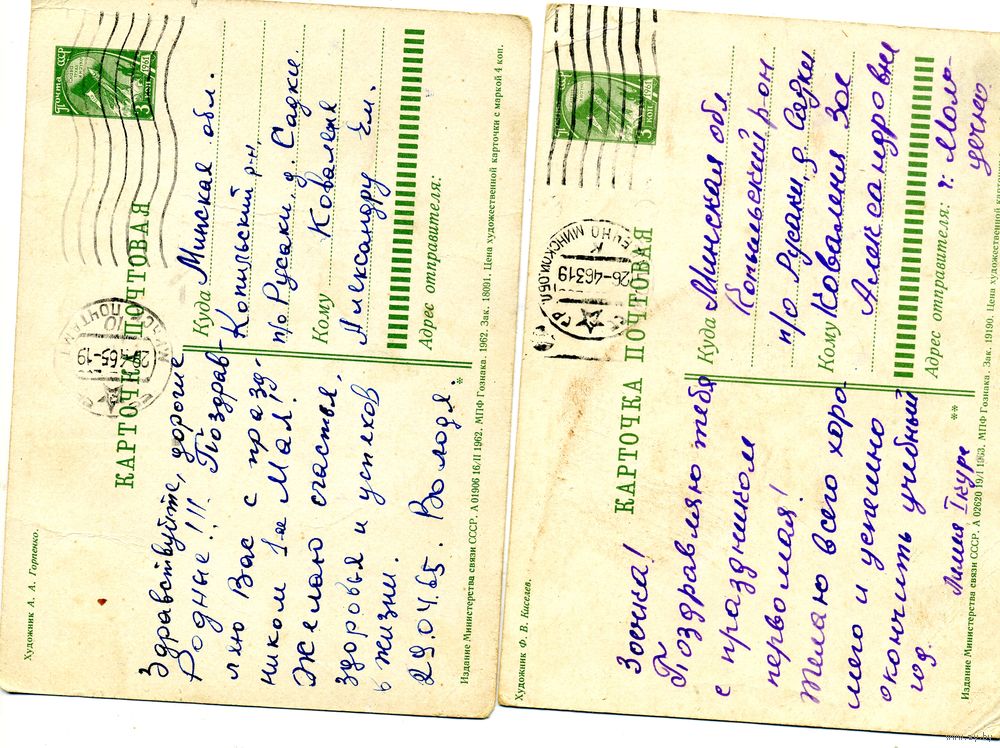 Художник А. А. Горпенко.
КАРТОЧКА ПОЧТОВАЯ
Почта СССР
3 коп 1961
Здравствуйте, дорогие
Родные!!! Поздрав-
ляю Вас с празд-
ником 1ое Мая!
Желаю счастья,
здоровья и успехов
в жизни.
29.04.65. Володя
Куда Минская обл.
Копыльский р-н,
п/о Русаки д. Садки
Кому Коваленя
Александру Ем.
Адрес отправителя:
*
Издание Министерства связи СССР. А 01906 16/II 1962. МПФ Гознака. 1962. Зак. 18091. Цена художественной карточки с маркой 4 коп.
Художник Ф. В. Киселев.
КАРТОЧКА ПОЧТОВАЯ
3 коп 1961
МИНСКОЙ ОБЛ.
26-4 63 19
Зоечка!
Поздравляю тебя
с праздником
первомая!
Желаю всего хоро
шего и успешно
окончить учебный
год.
Лилия
Куда Минская обл.
Копыльский р-он
п/о Русаки д Садки
Кому Коваленя Зое
Александровне
Адрес отправителя: г. Моло-
дечно
**
Издание Министерства связи СССР. А 02620 19/I 1963. МПФ Гознака. Зак. 19190. Цена художественной